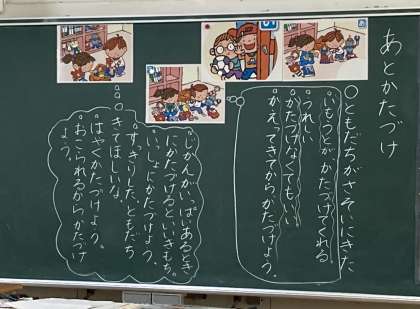 あとかたづけ
○ともだちがさそいにきた
いもうとがかたづけてくれる。
うれしい
かたづけなくてもいい
かえってきてからかたづけよう。
じかんがいっぱいあるとき
にかたづけるといいきもち。
いっしょにかたづけよう。
すっきりした。ともだち
きてほしいな。
はやくかたづけよう。
おこられるからかたづけ
よう。